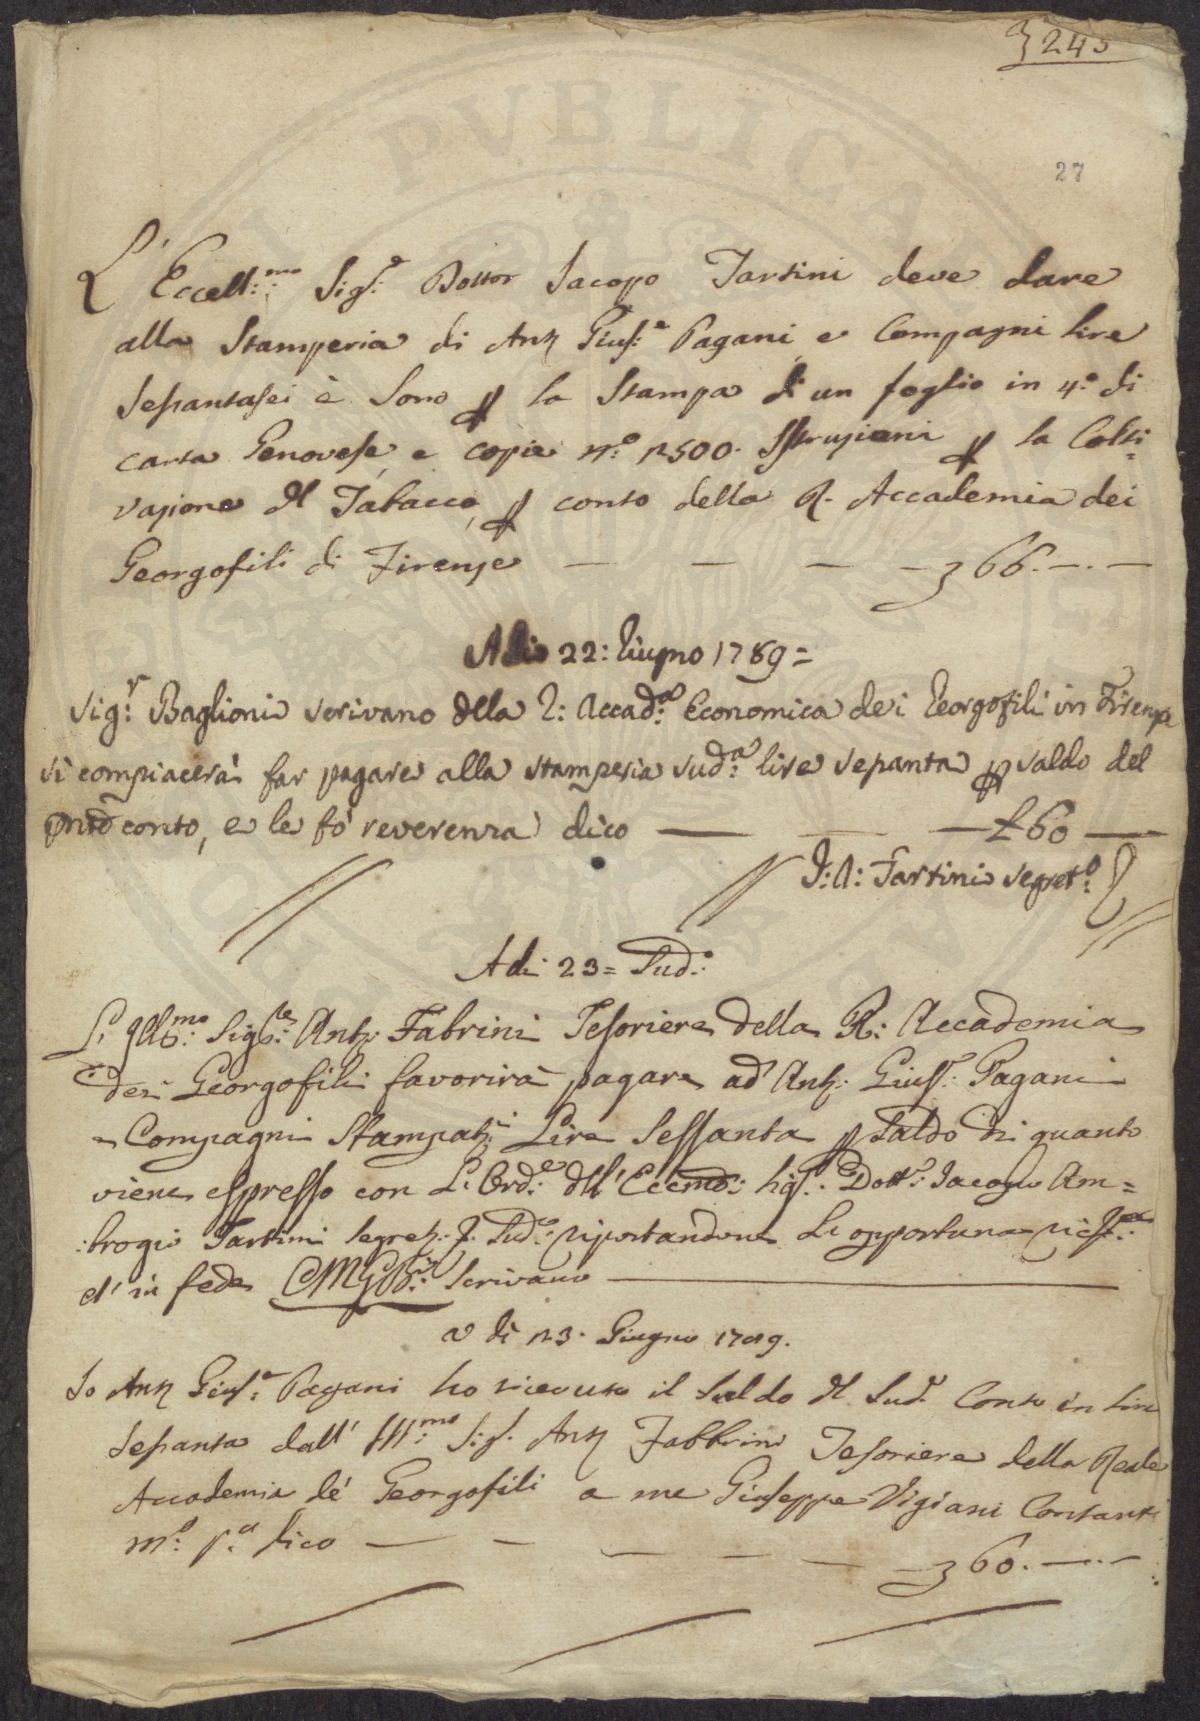 3 245
27
L'Eccell:mo Sig:e Dottor Jacopo Tartini deve dare
alla Stamperia di Ant Gius:e Pagani e Compagni lire
Sessantasei è sono p la Stampa di un foglio in 4:o di
carta Genovese, e copie n:o 1500. Istruzioni p la Colti=
vazione del Tabacco, p conto della R. Accademia dei
Georgofili di Firenze — — — 66.—.—
Adio 22: Giugno 1789=
Sig:r Baglioni scrivano della R: Accad:a Economica dei Georgofili in Firenze
si compiacerà far pagare alla stamperia sud:a lire sessanta p saldo del
conto, e le fò reverenza dico — — £60 —
J: A: Tartini segret:o
Adi 23= Sud:o
L'Ill:mo Sig:re Ant: Fabrini Tesoriere della R: Accademia
dei Georgofili favorirà pagare ad Ant: Gius: Pagani
e Compagni Stampat:i Lire Sessanta p Saldo di quanto
viene espresso con L'Ord:e dell' Eccmo: Sig: Dott:e Jacopo Am=
:brogio Tartini Segret: Sud:o riportandone L'opportuna ricev:ta
et in fede CMGB: Scrivano
a dì 23. Giugno 1789.
Io Ant Gius:e Pagani ho ricevuto il Saldo del Sud:o Conto in lire
Sessanta dall' Ill:mo Sig. Ant Fabbrini Tesoriere della Reale
Accademia de' Georgofili a me Giuseppe Vigiani Contanti
m:o p:a dico — — — 60.—.—